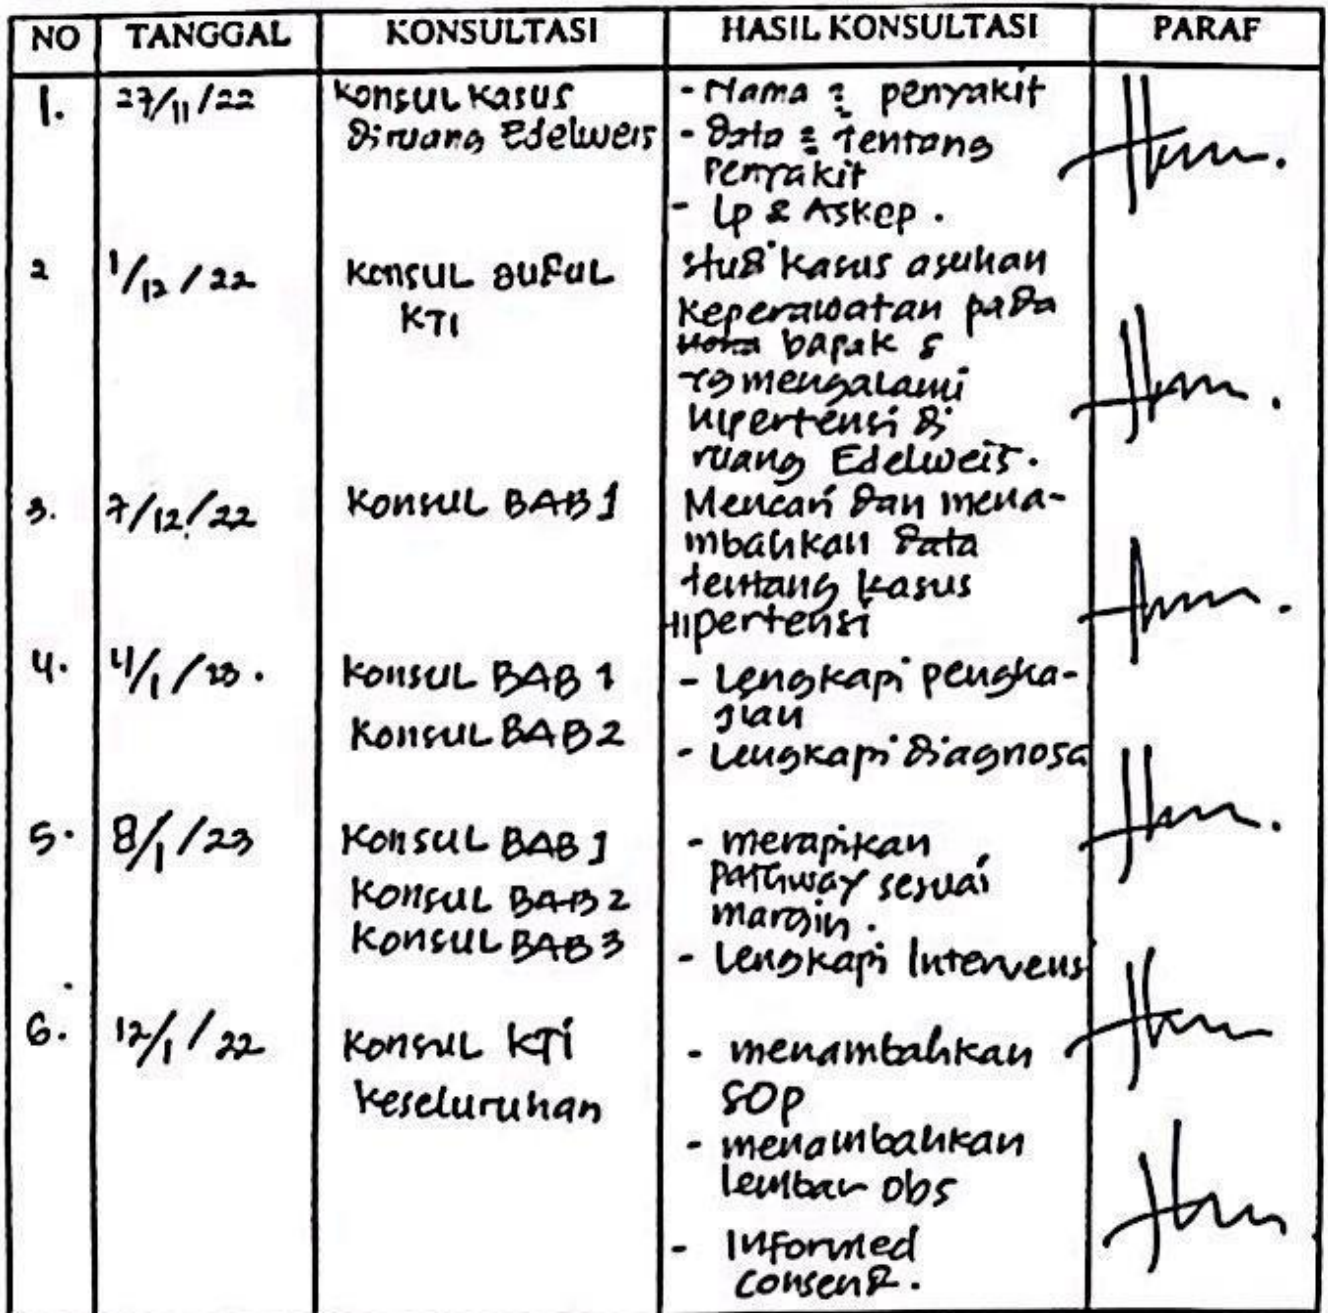 NO TANGGAL KONSULTASI HASIL KONSULTASI PARAF
1. 27/11/22 Konsul Kasus - Nama 2 penyakit
diruang Edelweis - Data 2 tentang
Penyakit
- Lp & Askep.
2 1/12/22 Konsul Judul Studi kasus asuhan
KTI Keperawatan pada
bapak S
yg mengalami
hipertensi di
ruang Edelweis.
3. 7/12/22 Konsul BAB 1 Mencari dan mena-
mbahkan data
tentang kasus
Hipertensi
4. 4/1/23. Konsul BAB 1 - Lengkapi pengka-
jian
Konsul BAB 2 - Lengkapi diagnosa
5. 8/1/23 Konsul BAB 1 - merapikan
Konsul BAB 2 pathway sesuai
margin.
Konsul BAB 3 - Lengkapi Intervens
6. 12/1/22 Konsul KTI - menambahkan
keseluruhan SOP
- menambahkan
lembar obs
- Informed
consent.